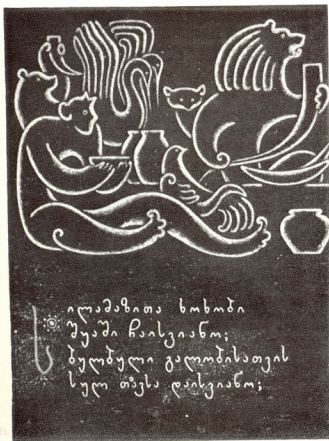 სილამაზითა ხოხობი
შუაში ჩაისვიანო;
ბულბული გალობისათვის
სულ თავსა დაისვიანო;